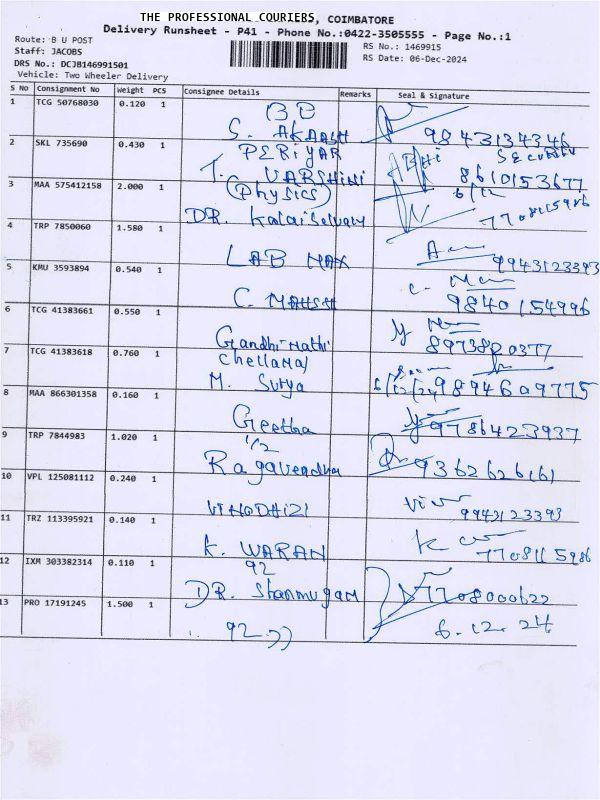 THE PROFESSIONAL COURIERS, COIMBATORE
Delivery Runsheet - P41 - Phone No.:0422-3505555 - Page No.:1
Route: B U POST
Staff: JACOBS
DRS No.: DCJB146991501
Vehicle: Two Wheeler Delivery
RS No.: 1469915
RS Date: 06-Dec-2024
S No Consignment No Weight PCS Consignee Details Remarks Seal & Signature
1 TCG 50768030 0.120 1
S. AKAASH 9843134346
2 SKL 735690 0.430 1 PERIYAR ABHI SECURITY
T. VARSHINI 8610153677
3 MAA 575412158 2.000 1 (Physics) 6/12
DR. Kalaiselvam 7708115986
4 TRP 7850060 1.580 1
LAB MAX 9943123393
5 KMU 3593894 0.540 1
C. MAHESH 9840154996
6 TCG 41383661 0.550 1
Gandhimathi 8973820377
7 TCG 41383618 0.760 1 Chellamal
M. Surya 6/12/24 9894609775
8 MAA 866301358 0.160 1
Geetha 9786423937
9 TRP 7844983 1.020 1 1/2
Ragavendha 9362626161
10 VPL 125081112 0.240 1
VINODHINI 9943123393
11 TRZ 113395921 0.140 1
K. WARAN 7708115986
12 IXM 303382314 0.110 1 92
DR. Shanmugam 7708000622
13 PRO 17191245 1.500 1
92 6.12.24